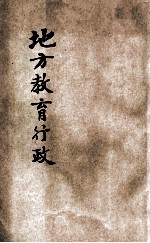 地方教育行政